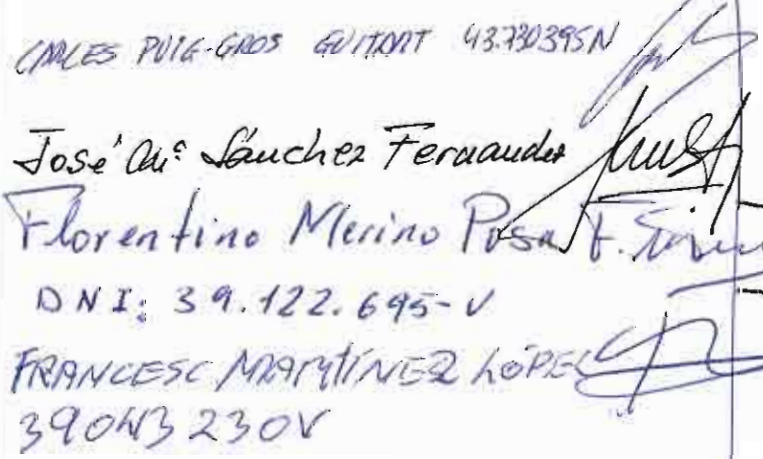 CARLES PUIG-GROS GUITART 43.730395N
José Mª Sánchez Fernandez
Florentino Merino Posa
DNI: 39.122.695-V
FRANCESC MARTÍNEZ LÓPEZ
39043230V